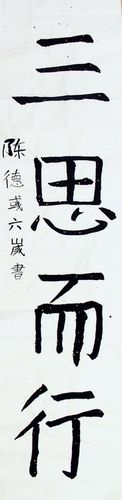 三思而行
陈德彧六岁書